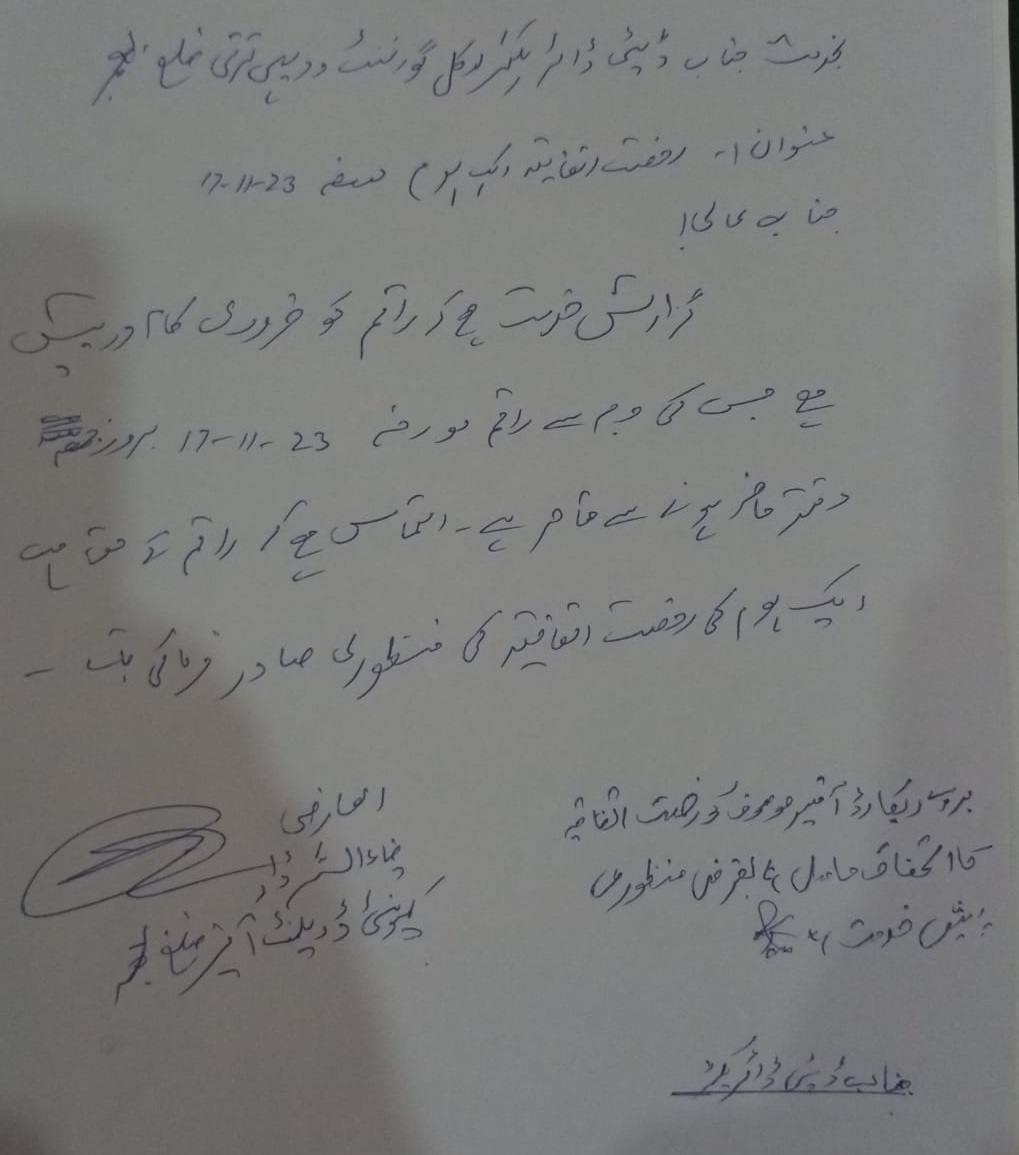 بخدمت جناب ڈپٹی ڈائریکٹر لوکل گورنمنٹ و دیہی ترقی ضلع
عنوان :۔ رخصت اتفاقیہ ایک یوم مورخہ 17-11-23
جناب عالی!
گزارش خدمت ہے کہ راقم کو ضروری کام درپیش
ہے جس کی وجہ سے راقم مورخہ 17-11-23 بروز جمعہ
دفتر حاضر ہونے سے قاصر ہے۔ التماس ہے کہ راقم کے حق میں
ایک یوم کی رخصت اتفاقیہ کی منظوری صادر فرمائی جائے ۔
العارض
ڈار
کمیونٹی ڈویلپمنٹ آفیسر ضلع
بروئے ریکارڈ آفیسر موصوف کو رخصت اتفاقیہ
کا استحقاق حاصل ہے بغرض منظوری
پیش خدمت ہے
جناب ڈپٹی ڈائریکٹر